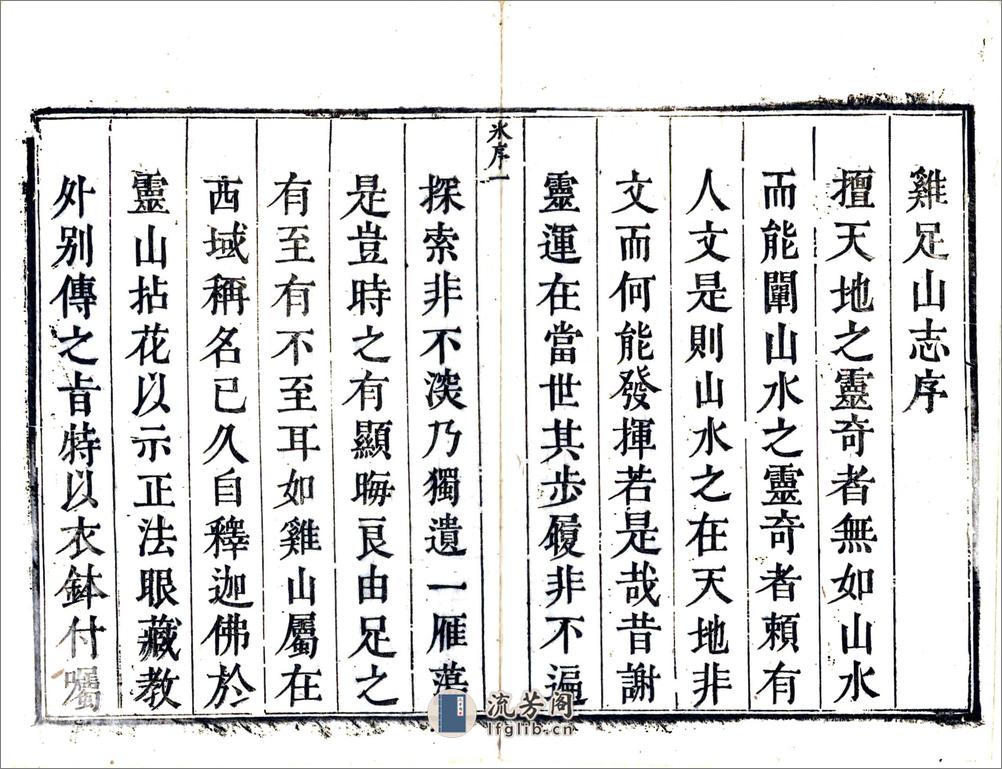 雞足山志序
擅天地之靈奇者無如山水
而能闡山水之靈奇者賴有
人文是則山水之在天地非
文而何能發揮若是哉昔謝
靈運在當世其步履非不遍
氷序一
探索非不深乃獨遺一雁蕩
是豈時之有顯晦良由足之
有至有不至耳如雞山屬在
西域稱名已久自釋迦佛於
靈山拈花以示正法眼藏教
外别傳之旨特以衣鉢付囑
流芳阁
lfglib.cn